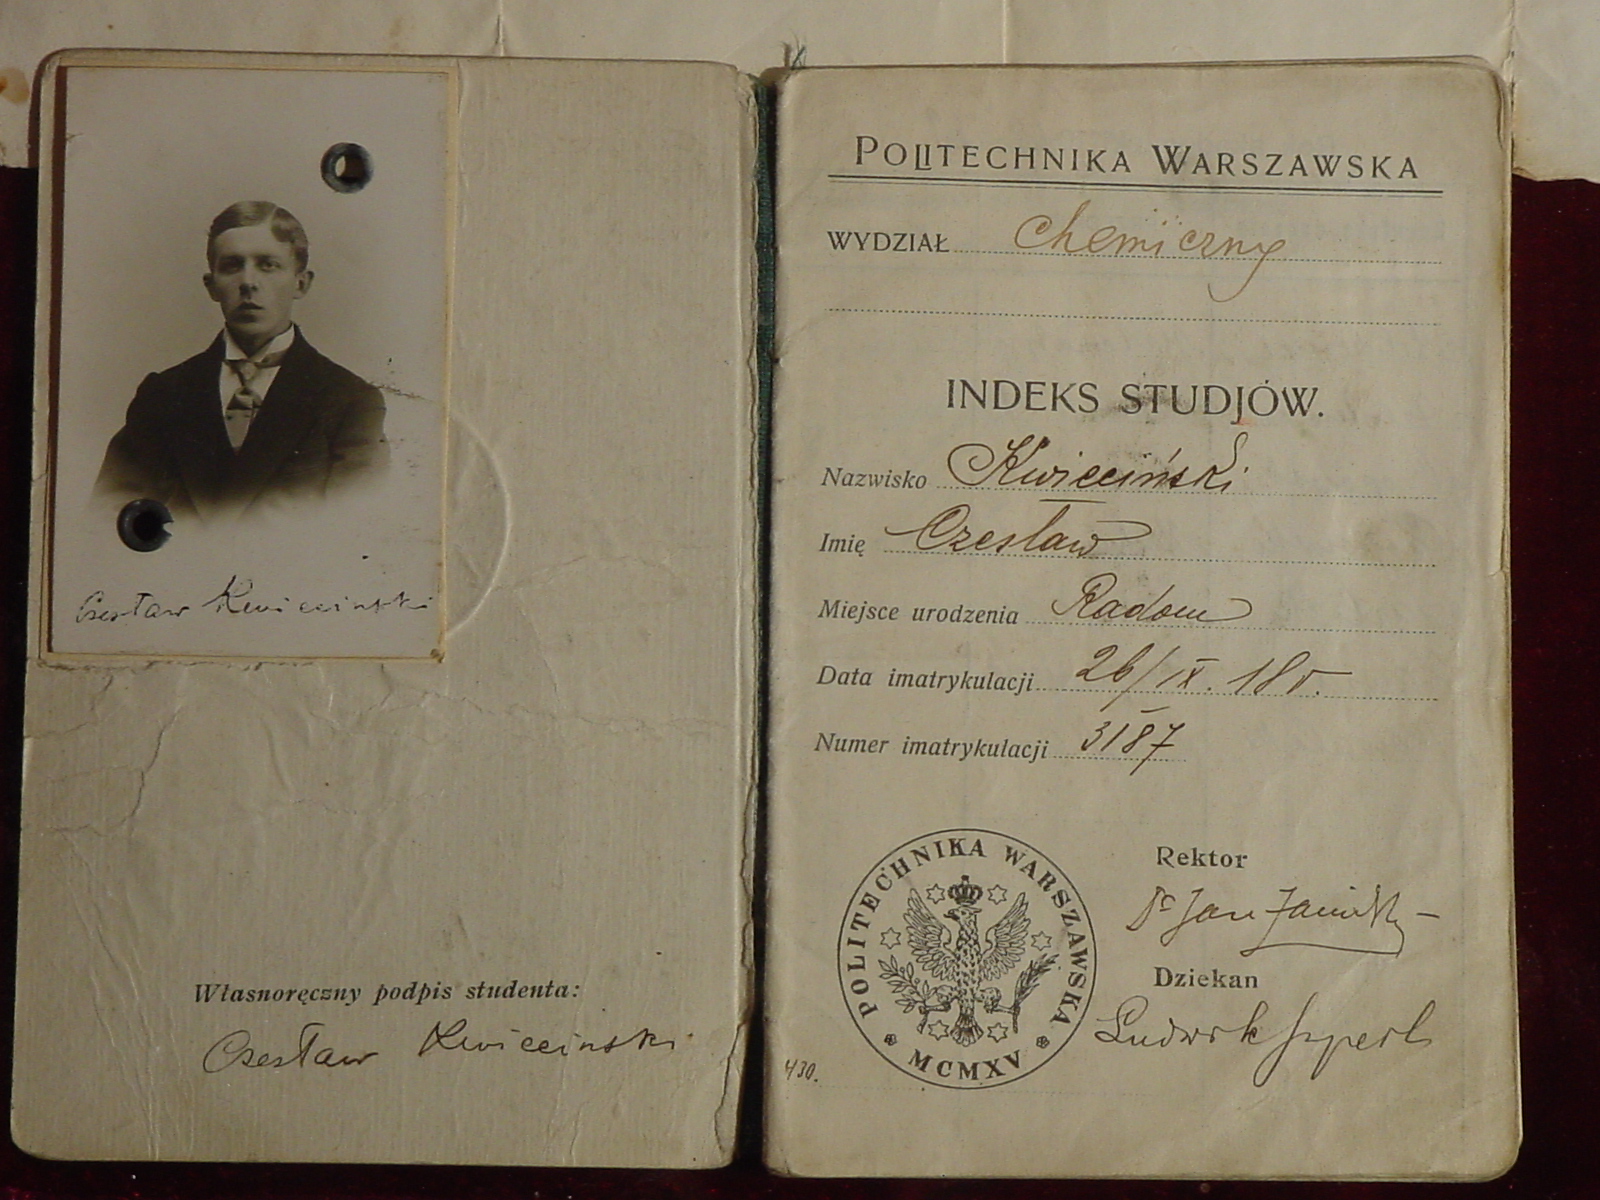 Czesław Kwieciński
Własnoręczny podpis studenta:
Czesław Kwieciński
POLITECHNIKA WARSZAWSKA
WYDZIAŁ Chemiczny
INDEKS STUDJÓW.
Nazwisko Kwieciński
Imię Czesław
Miejsce urodzenia Radom
Data imatrykulacji 26/IX. 18 r.
Numer imatrykulacji 3187
POLITECHNIKA WARSZAWSKA
MCMXV
Rektor
Dr Jan
Dziekan
Ludwik Szperl
430.